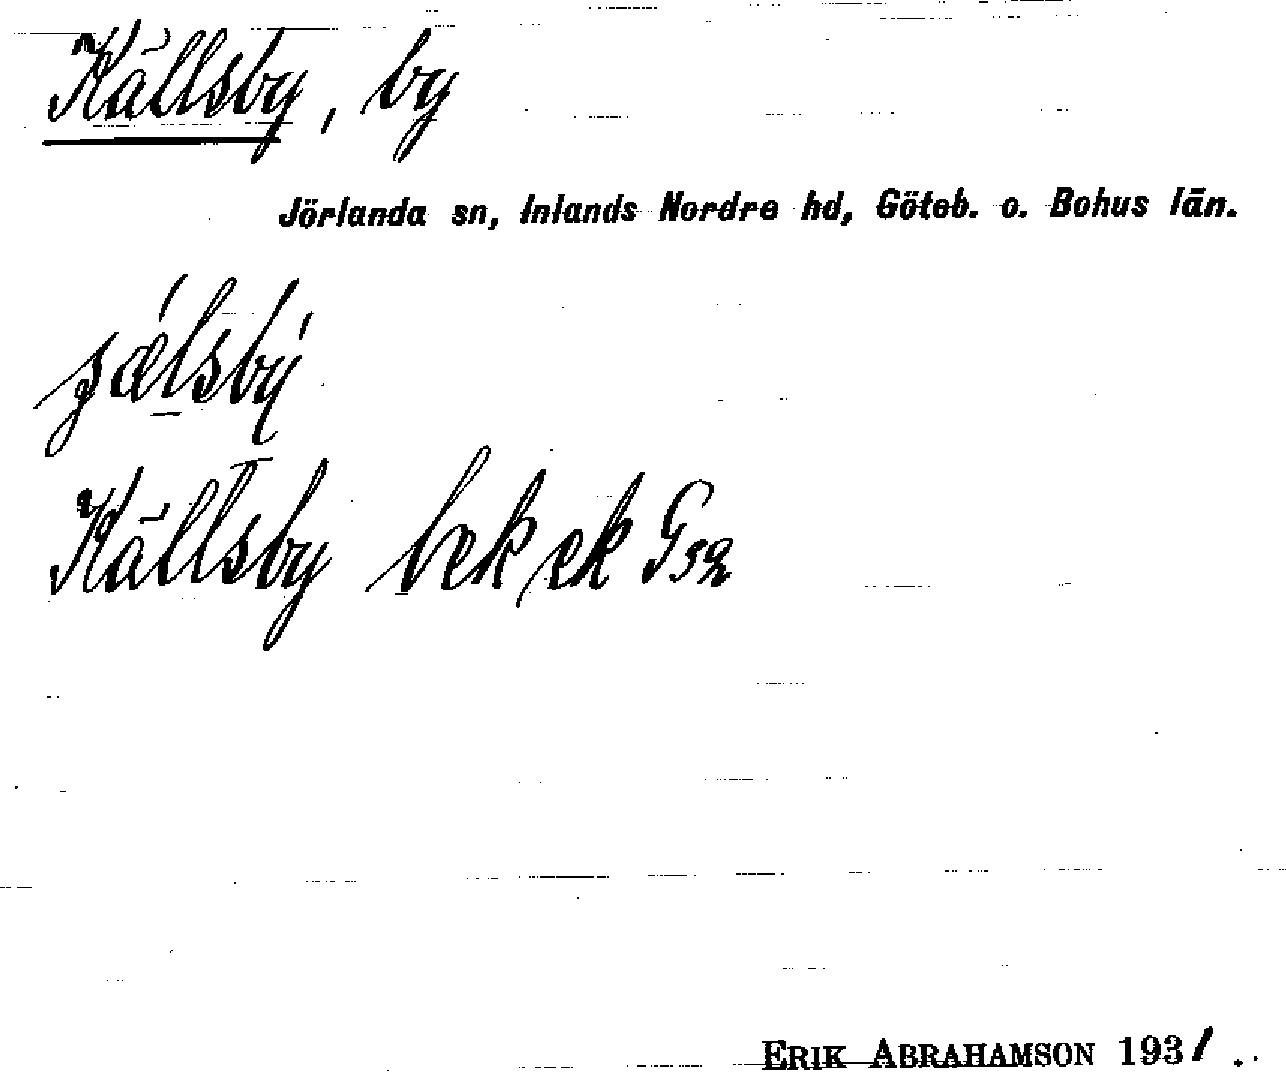 Källsby, by
Jörlanda sn, Inlands Nordre hd, Göteb. o. Bohus län.
Källtsby bek ek G32
ERIK ABRAHAMSON 1931